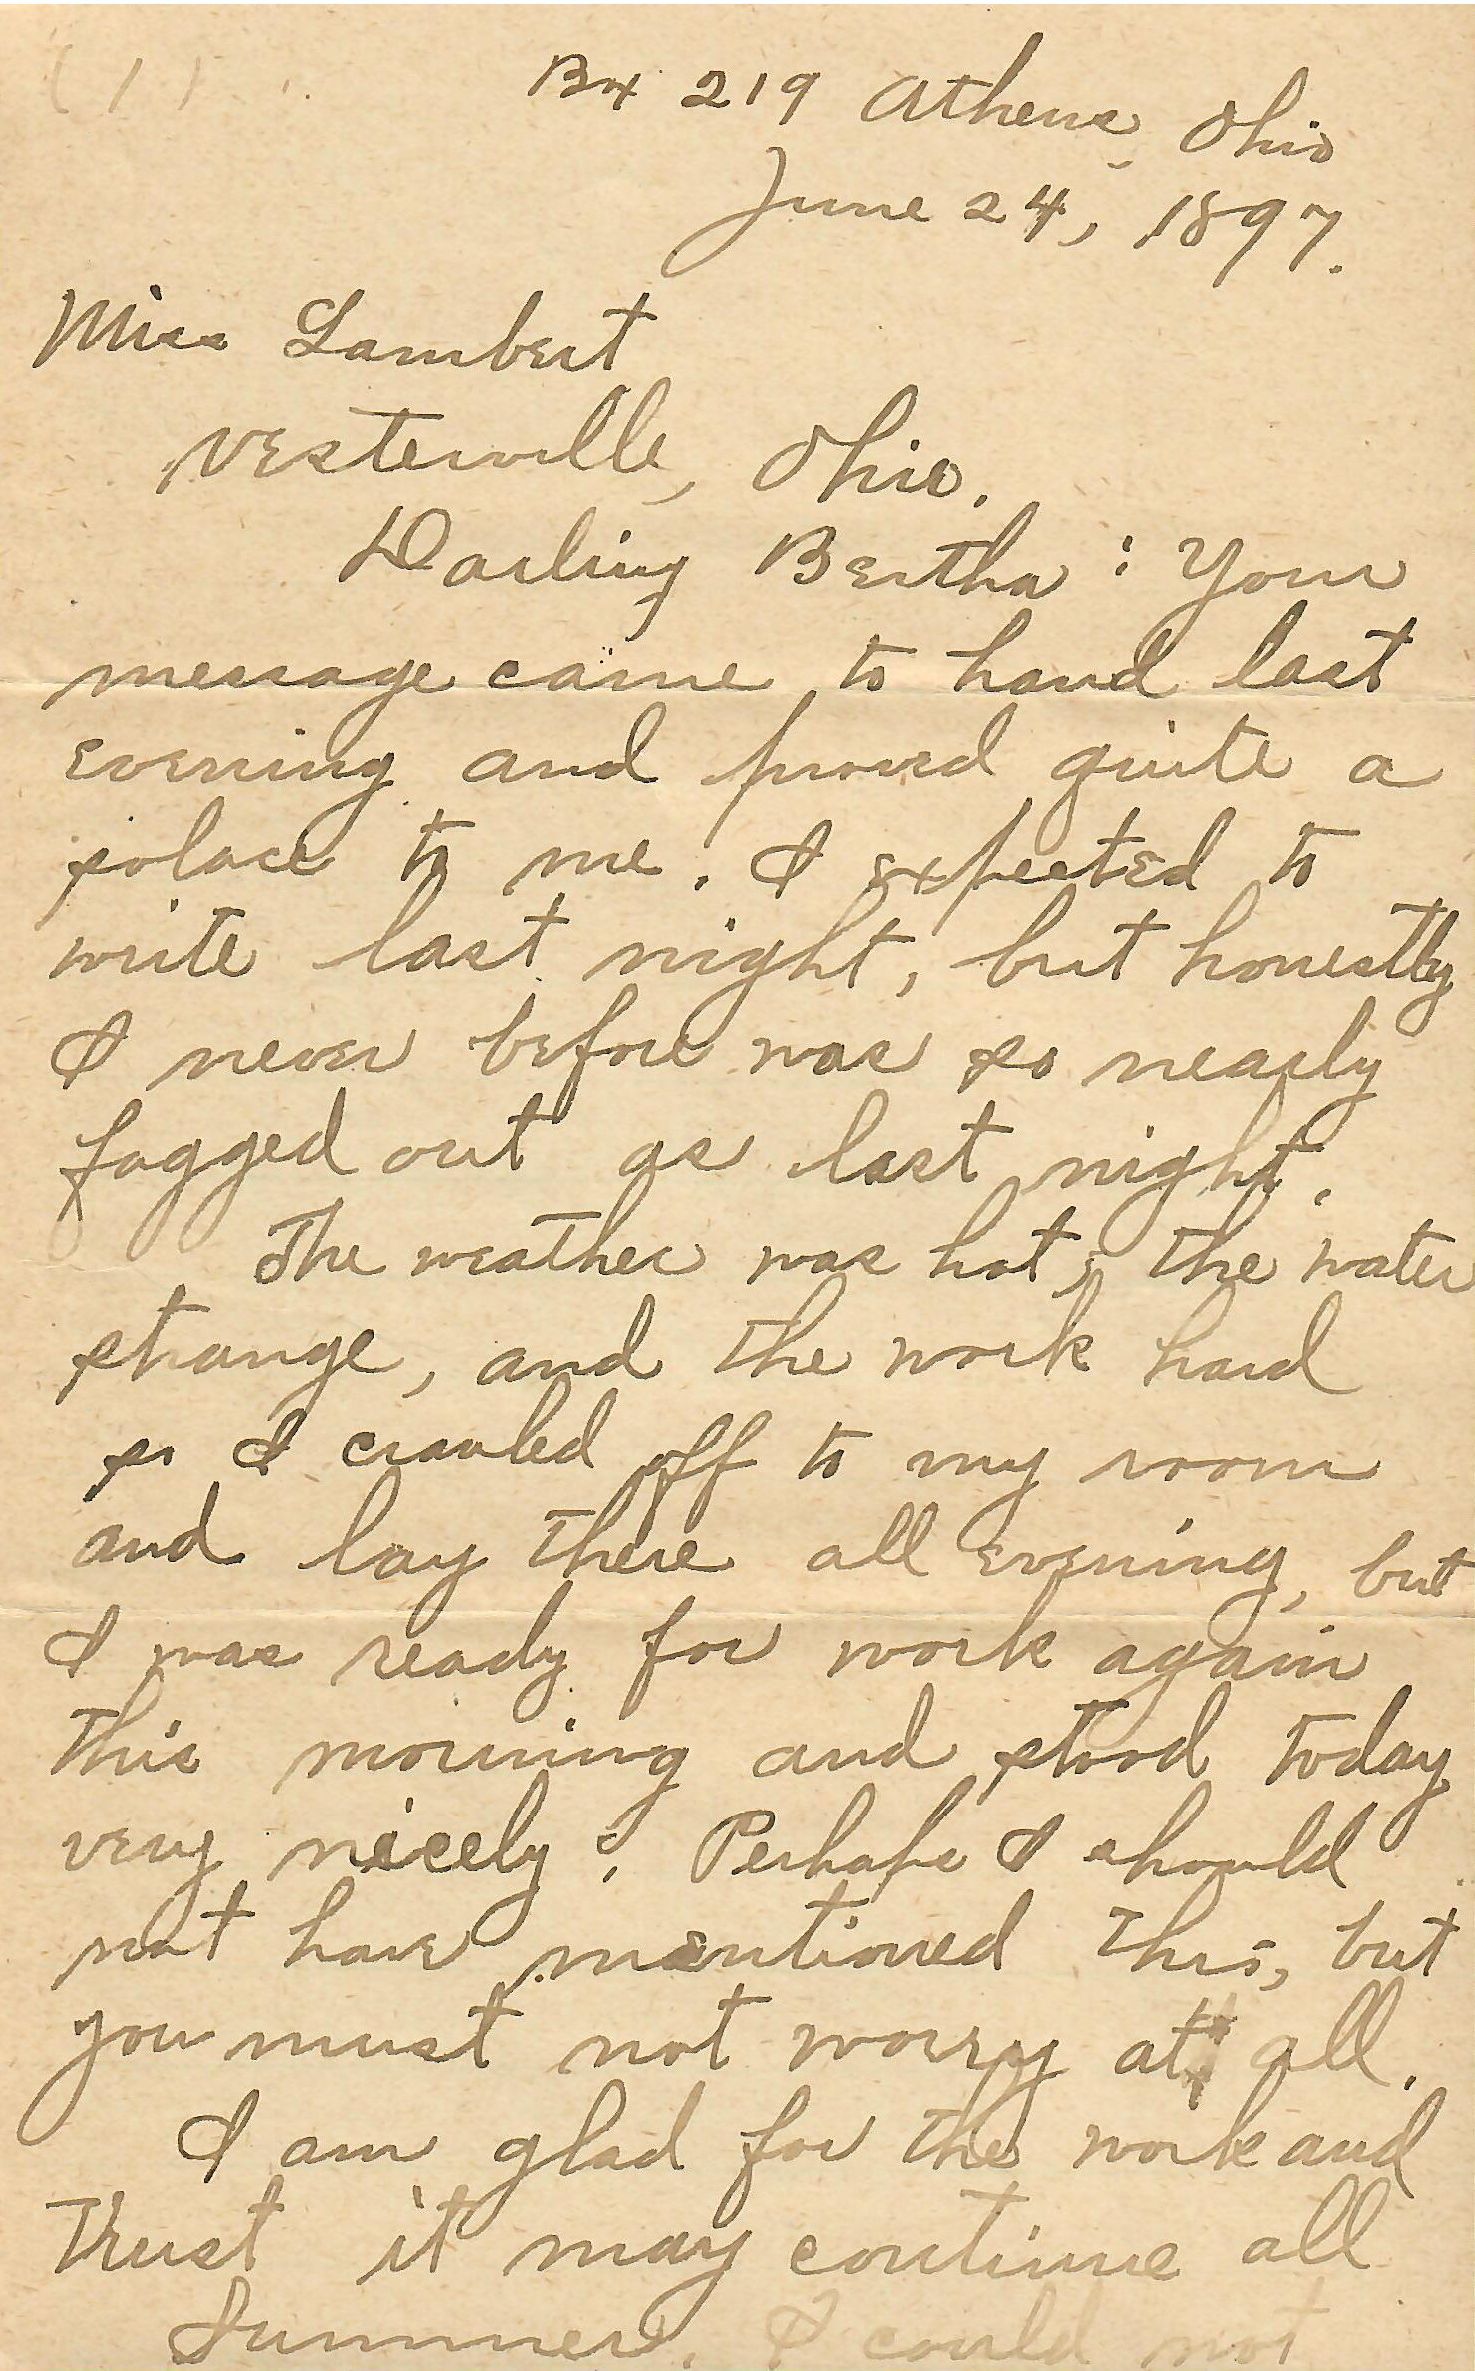 (1)
Bx 219 Athens, Ohio
June 24, 1897.
Miss Lambert
Westerville, Ohio.
Darling Bertha: Your
message came to hand last
evening and proved quite a
solace to me. I expected to
write last night, but honestly
I never before was so nearly
fagged out as last night.
The weather was hot, the water
strange, and the work hard
so I crawled off to my room
and lay there all evening, but
I was ready for work again
this morning and stood today
very nicely. Perhaps I should
not have mentioned this, but
you must not worry at all.
I am glad for the work and
trust it may continue all
Summer. I could not